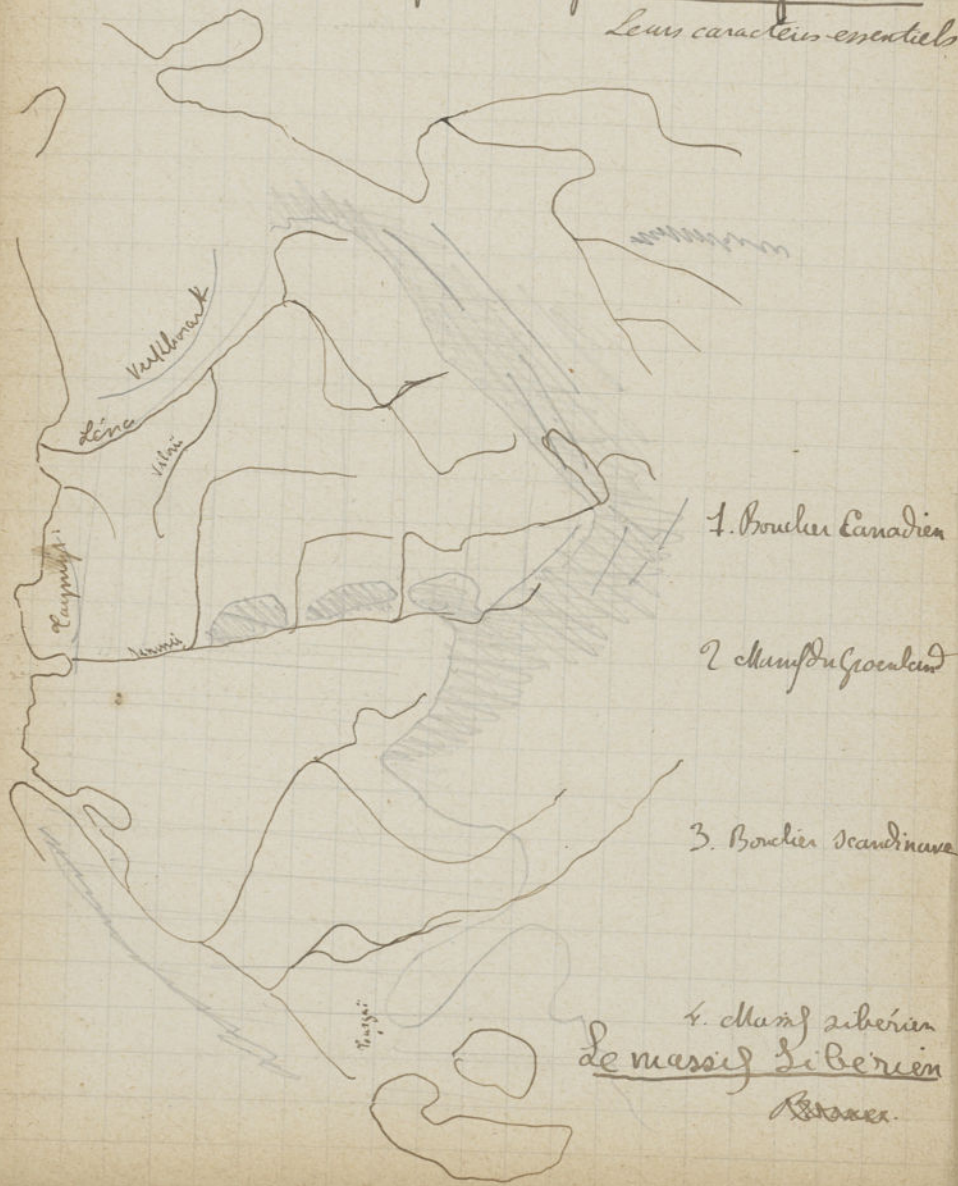 Leurs caractères essentiels
Verkhoïansk
Léna
Vilui
Taymyr
Iénisséi
1. Bouclier Canadien
2 Massif du Groenland
3. Bouclier scandinave
Tourgaï
4. Massif sibérien
Le massif Sibérien